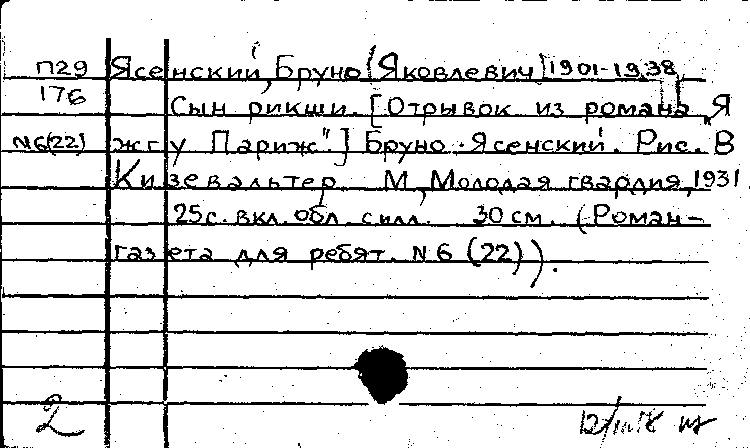 П29 Ясенский, Бруно (Яковлевич) 1901-1938
176 Сын рикши. [Отрывок из романа „Я
N6(22) жгу Париж".] Бруно Ясенский. Рис. В
Кизевальтер. М, Молодая гвардия, 1931.
25с. вкл. обл. с илл. 30 см. (Роман-
газета для ребят. N 6 (22)).
2